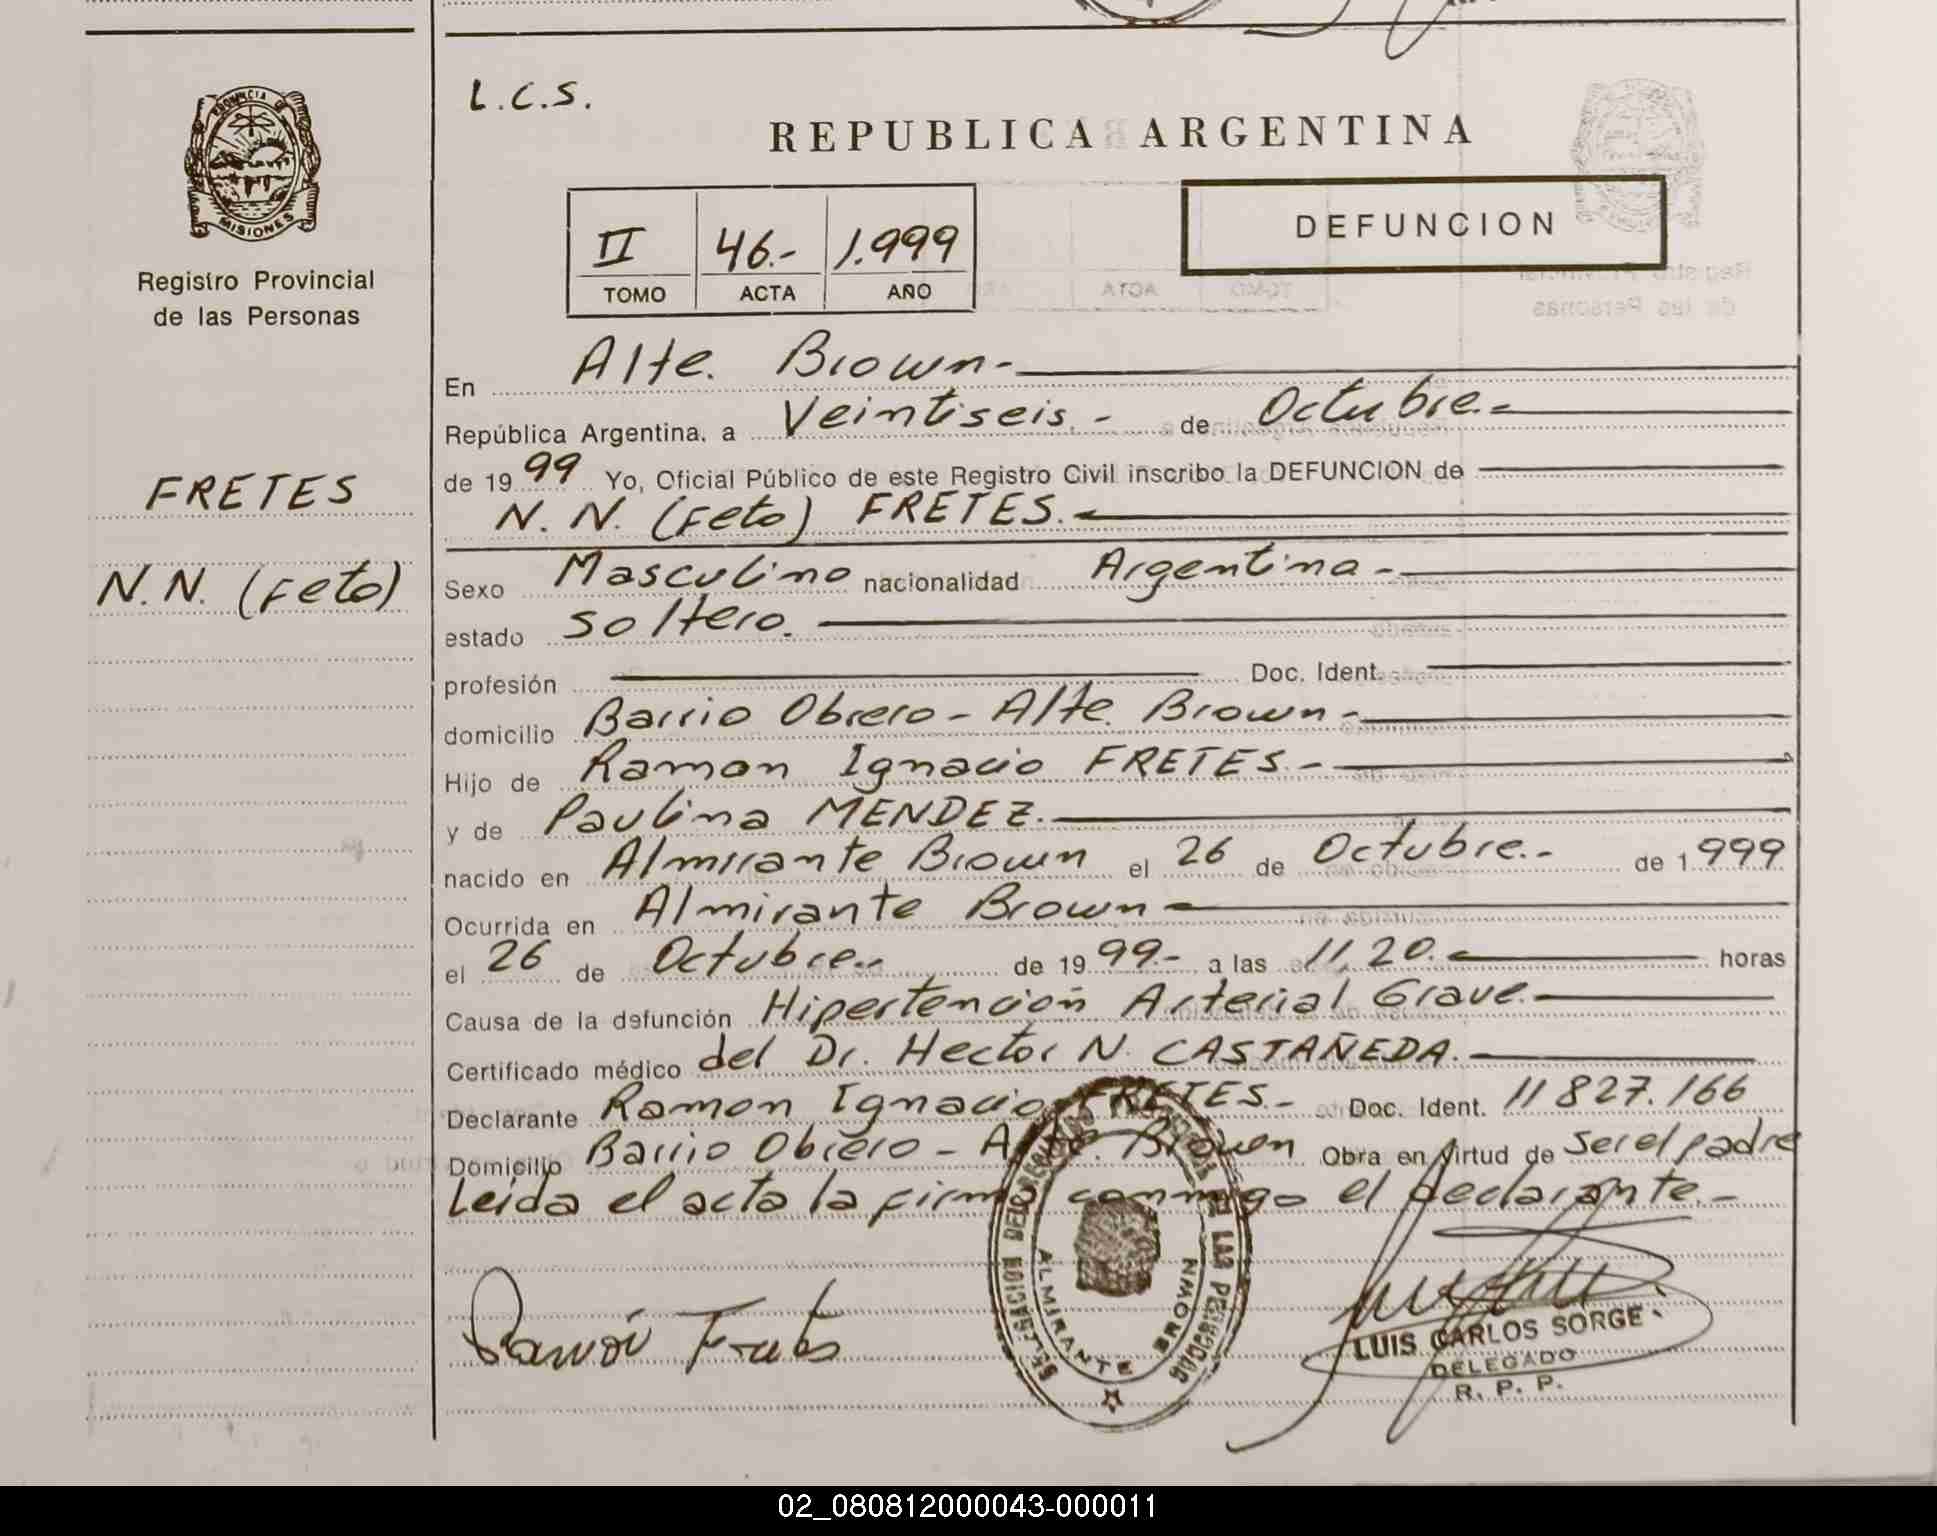 L.C.S.
REPUBLICA ARGENTINA
PROVINCIA DE
MISIONES
Registro Provincial
de las Personas
II 46.- 1.999
TOMO ACTA AÑO
DEFUNCION
FRETES
N.N. (Feto)
En Alte. Brown-
República Argentina, a Veintiseis.- de Octubre.-
de 1999 Yo, Oficial Público de este Registro Civil inscribo la DEFUNCION de
N.N. (Feto) FRETES.
Sexo Masculino nacionalidad Argentina-
estado soltero.
profesión Doc. Ident.
domicilio Barrio Obrero - Alte. Brown-
Hijo de Ramon Ignacio FRETES-
y de Paulina MENDEZ.
nacido en Almirante Brown el 26 de Octubre.- de 1.999
Ocurrida en Almirante Brown
el 26 de Octubre.- de 1999.- a las 11,20. horas
Causa de la defunción Hipertención Arterial Grave.
Certificado médico del Dr. Hector N. CASTAÑEDA.
Declarante Ramon Ignacio FRETES.- Doc. Ident. 11827.166
Domicilio Barrio Obrero - Alte. Brown Obra en virtud de ser el padre
Leida el acta la firma conmigo el declarante.-
Ramón Fretes
ALMIRANTE BROWN
LUIS CARLOS SORGE
DELEGADO
R. P. P.
02_080812000043-000011